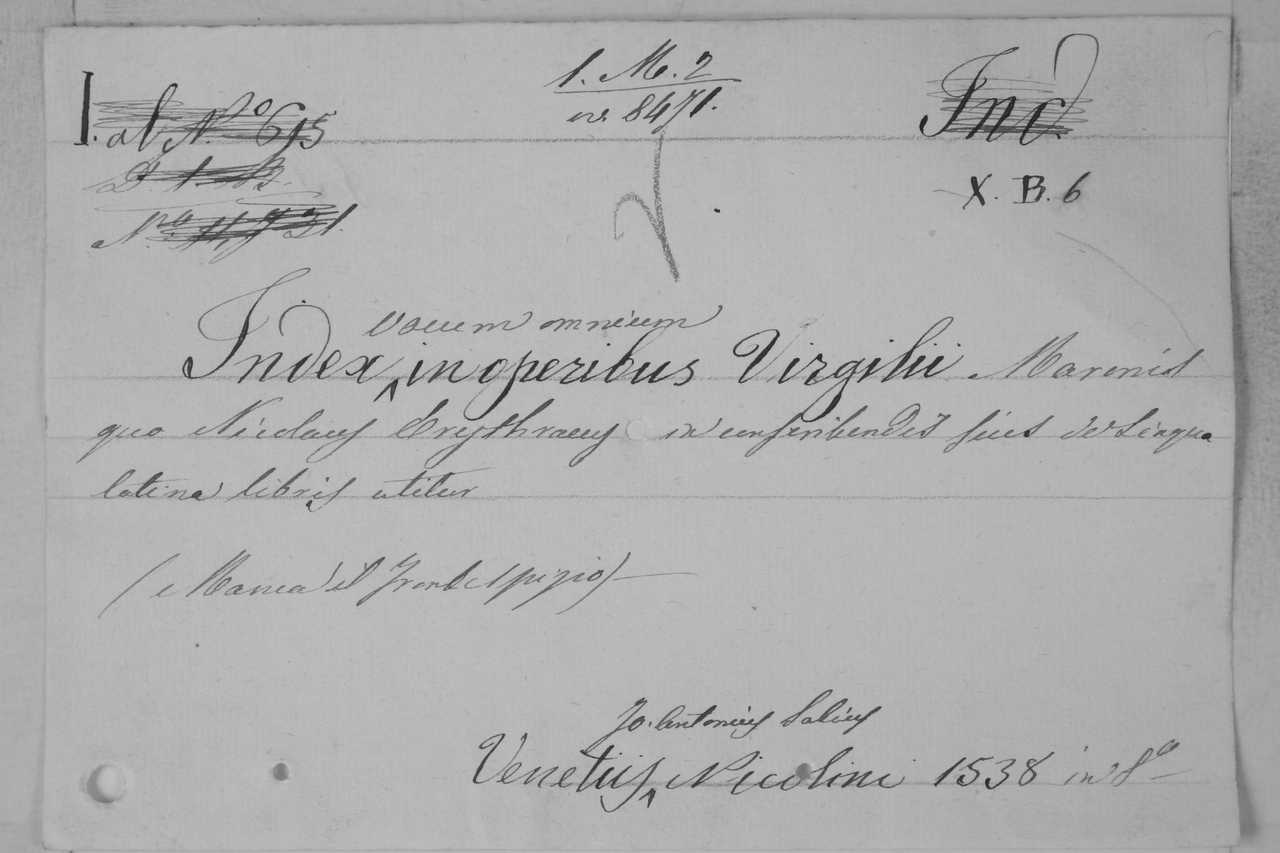 I. ab Nº 615
1. M. 2
in 8471.
Ind.
X. B. 6
vocum omnium
Index in operibus Virgilii Maronis
quo Nicolaus Erythraeus in conscribendis suis de Lingua
latina libris utitur
(Manca il frontespizio)
Jo. Antonius Salius
Venetiis, Nicolini 1538 in 8º